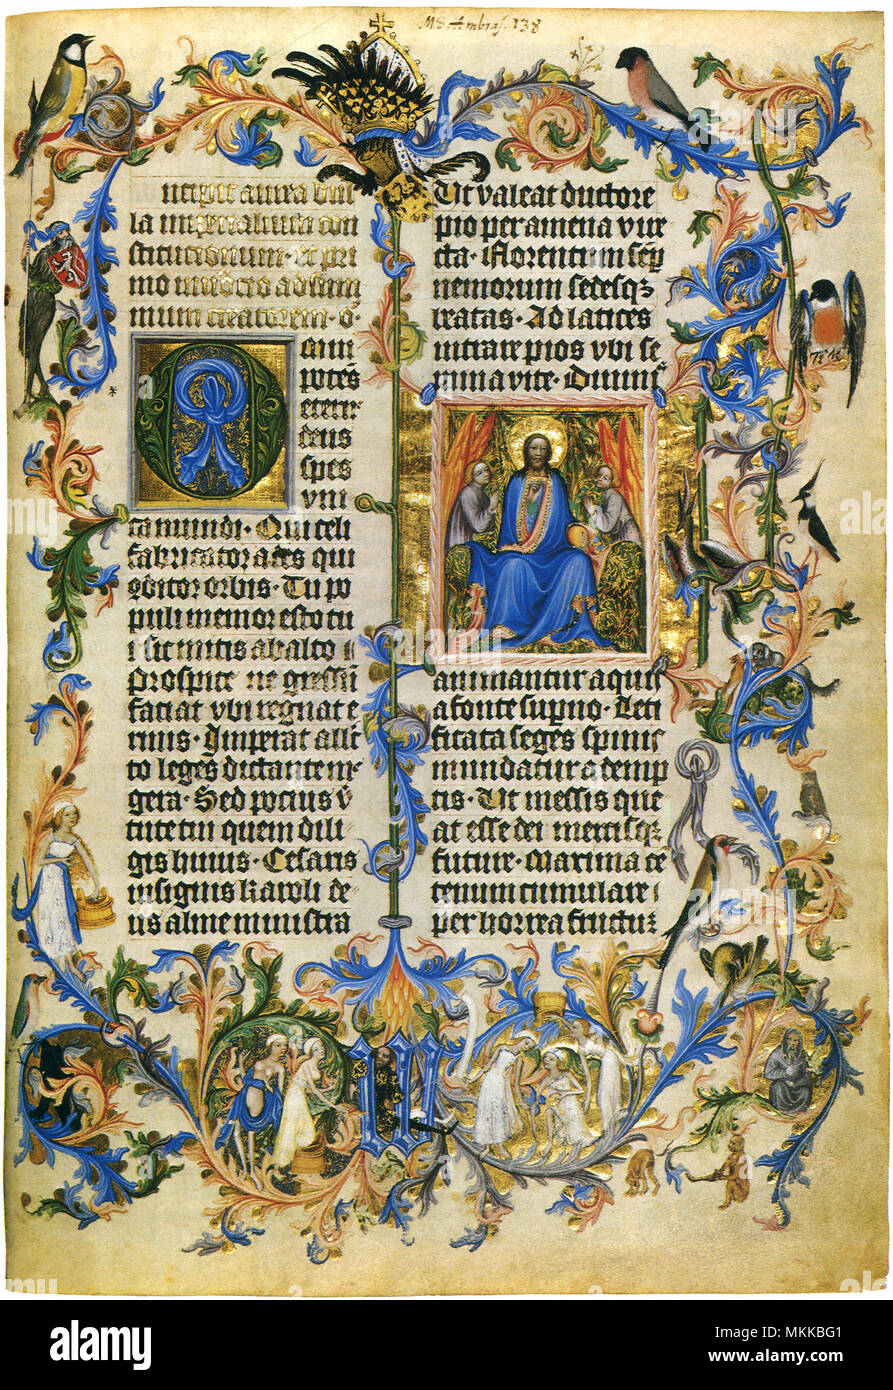 MS Ambras. 138
ncipit aurea bul
la imperialium con
stitucionum · et pri
mo invocacio ad sum
mum creatorem · O
mni
potēs
eterne
deus
spes
vni
ca mundi · Qui celi
fabricator ades qui
gditor orbis · Tu po
puli memor esto tu
i sic mitis ab alto
prospice ne gressū
faciat vbi regnat e
rinis · Imperat alle
cto leges dictante me
gera · Sed pocius v
tute tui quem dili
gis huius · Cesaris
insignis karoli de
us alme ministra
Ut valeat ductore
pio per amena vire
cta · florentum semp
nemorum sedesqz
beatas · Ad latices
intrare pios vbi se
mina vite · Diuinis
animantur aquis
a fonte supno · Leti
ficata seges spinis
mundatur ademp
tis · Ut messis que
at esse dei mercisqz
future · Maxima ce
tenum cumulare
per horrea fructuz
W
alamy
Image ID: MKKBG1
www.alamy.com